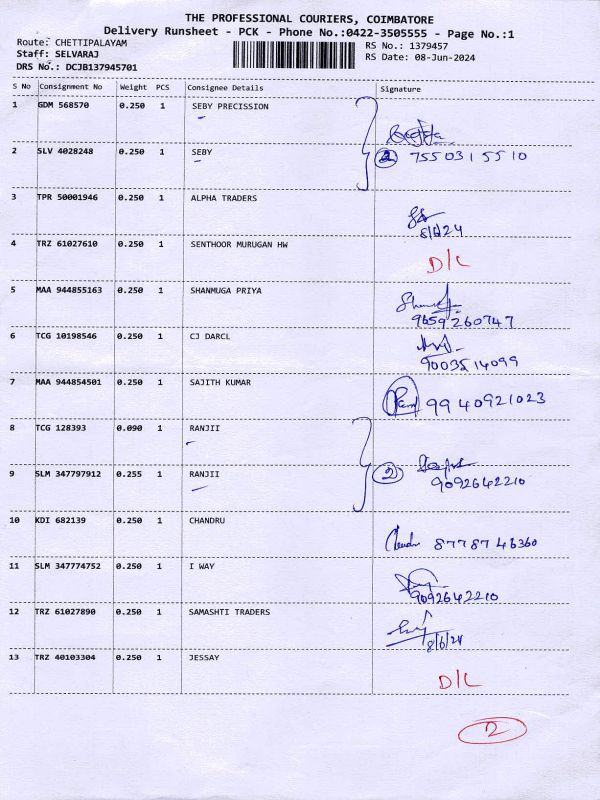 THE PROFESSIONAL COURIERS, COIMBATORE
Delivery Runsheet - PCK - Phone No.:0422-3505555 - Page No.:1
Route: CHETTIPALAYAM RS No.: 1379457
Staff: SELVARAJ RS Date: 08-Jun-2024
DRS No.: DCJB137945701
S No Consignment No Weight PCS Consignee Details Signature
1 GDM 568570 0.250 1 SEBY PRECISSION
2 SLV 4028248 0.250 1 SEBY 2 7550315510
3 TPR 50001946 0.250 1 ALPHA TRADERS
8/6/24
4 TRZ 61027610 0.250 1 SENTHOOR MURUGAN HW
D/L
5 MAA 944855163 0.250 1 SHANMUGA PRIYA
9659260747
6 TCG 10198546 0.250 1 CJ DARCL
9003514099
7 MAA 944854501 0.250 1 SAJITH KUMAR
9940921023
8 TCG 128393 0.090 1 RANJII
9 SLM 347797912 0.255 1 RANJII 2
9092642210
10 KDI 682139 0.250 1 CHANDRU
Chandru 8778746360
11 SLM 347774752 0.250 1 I WAY
9092642210
12 TRZ 61027890 0.250 1 SAMASHTI TRADERS
8/6/24
13 TRZ 40103304 0.250 1 JESSAY
D/L
2